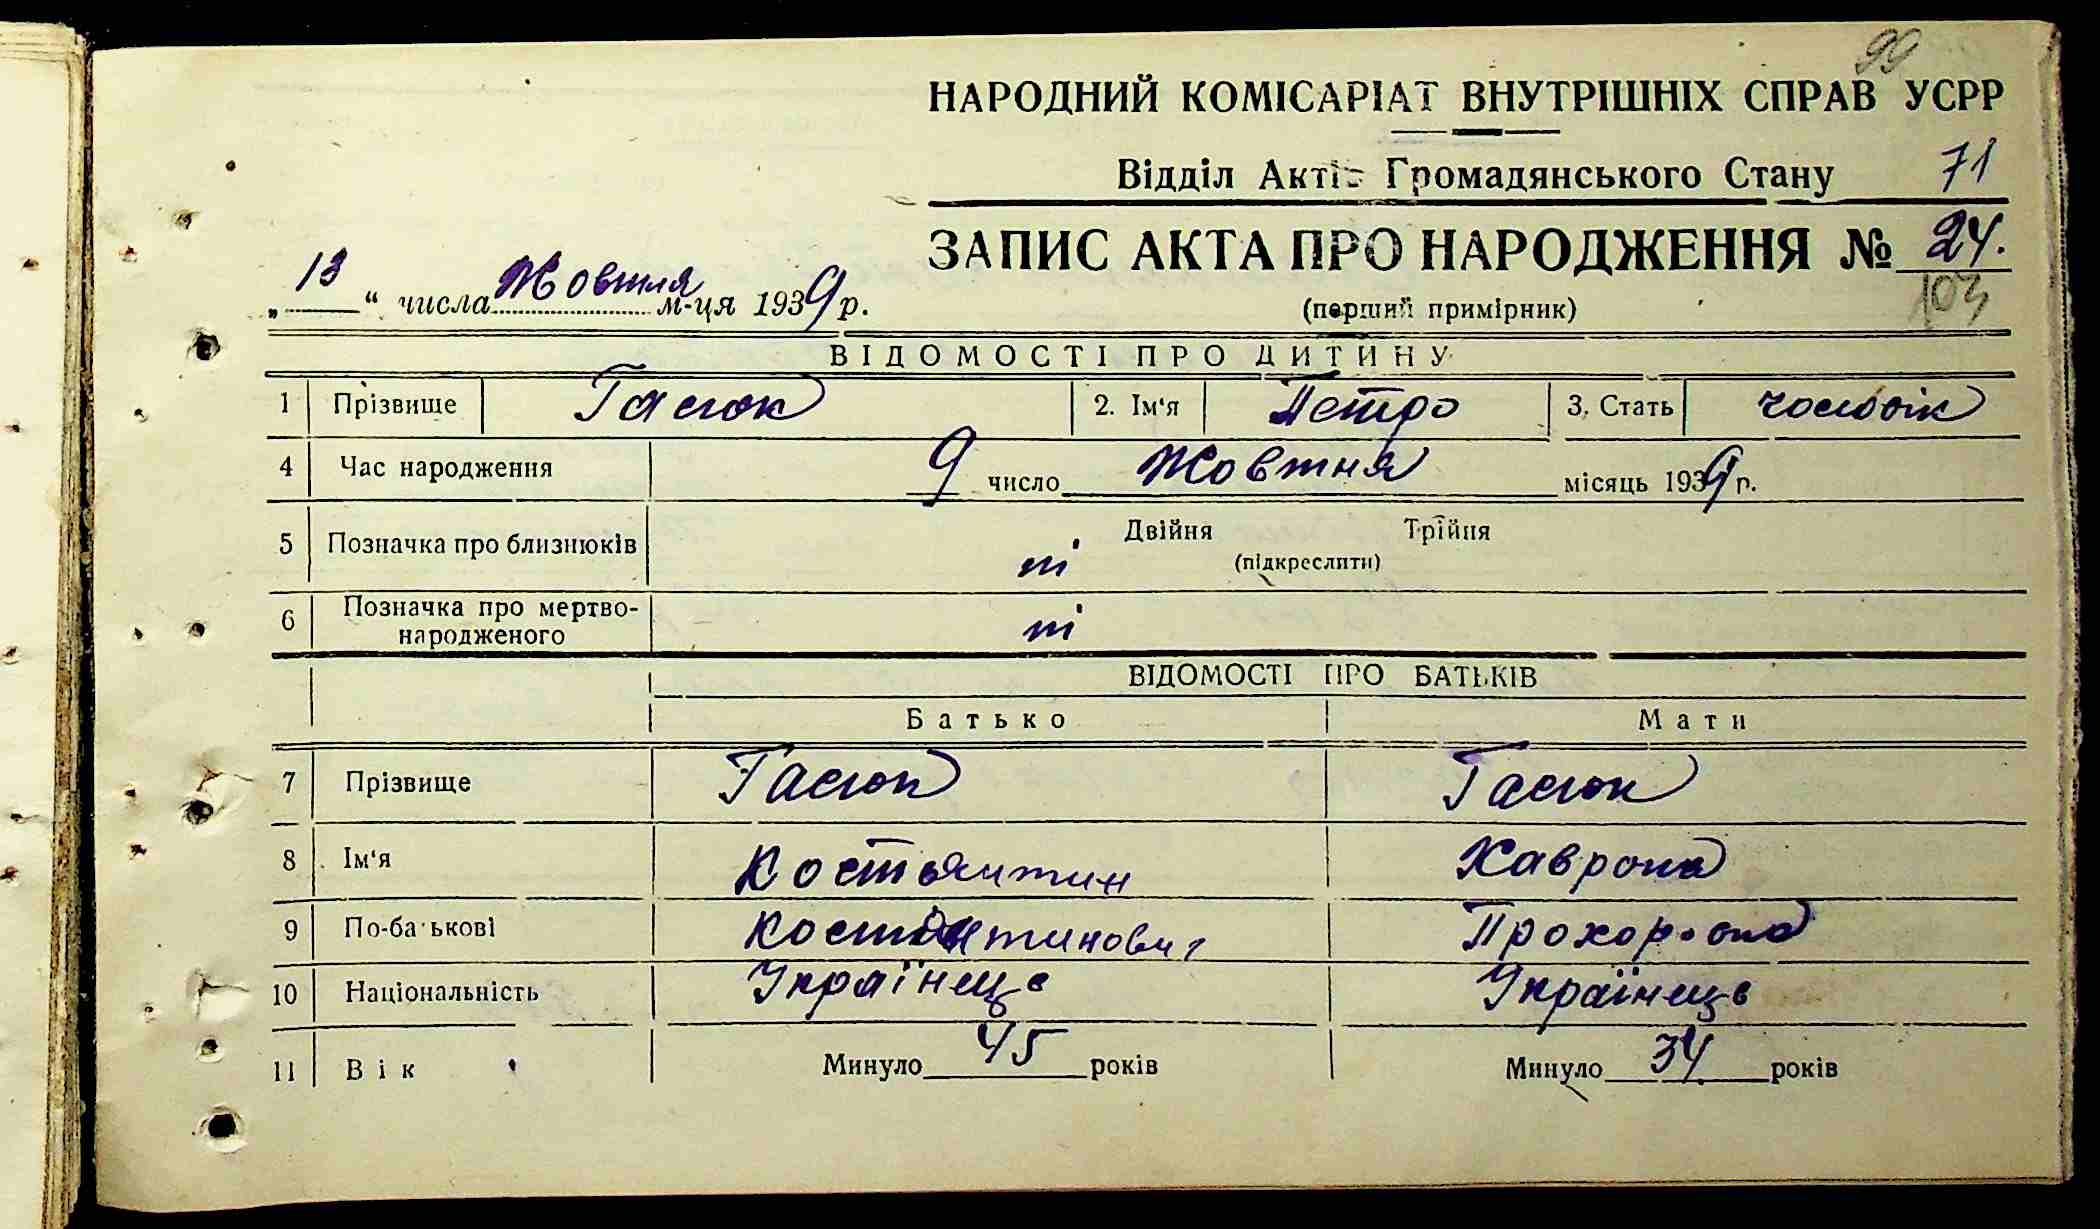 99
НАРОДНИЙ КОМІСАРІАТ ВНУТРІШНІХ СПРАВ УСРР
Відділ Актів Громадянського Стану 71
ЗАПИС АКТА ПРО НАРОДЖЕННЯ № 24.
„13“ числа Жовтня м-ця 1939 р.
(перший примірник) 103
ВІДОМОСТІ ПРО ДИТИНУ
1 Прізвище Гасюк 2. Ім'я Петро 3. Стать чоловік
4 Час народження 9 число Жовтня місяць 1939 р.
5 Позначка про близнюків ні Двійня Трійня
(підкреслити)
6 Позначка про мертво-
народженого ні
ВІДОМОСТІ ПРО БАТЬКІВ
Батько Мати
7 Прізвище Гасюк Гасюк
8 Ім'я Костьянтин Хаврона
9 По-батькові Костянтинович Прохоровна
10 Національність Українець Українець
11 Вік Минуло 45 років Минуло 34 років